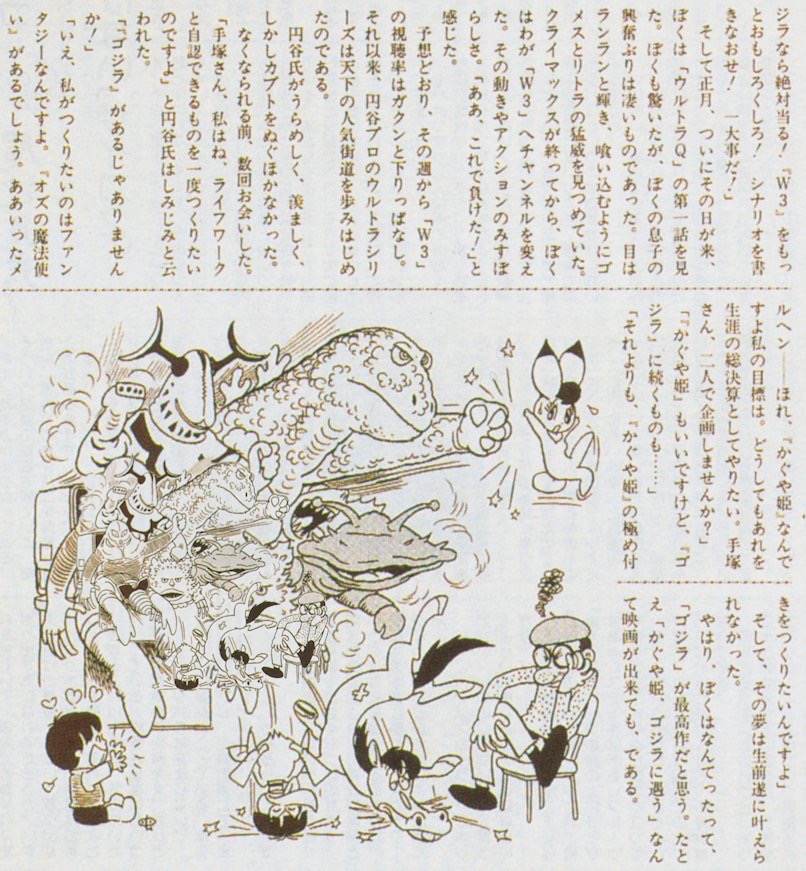 ジラなら絶対当る！『W3』をもっ
とおもしろくしろ！シナリオを書
きなおせ！　一大事だ！」
　そして正月、ついにその日が来、
ぼくは「ウルトラQ」の第一話を見
た。ぼくも驚いたが、ぼくの息子の
興奮ぶりは凄いものであった。目は
ランランと輝き、喰い込むようにゴ
メスとリトラの猛威を見つめていた。
クライマックスが終ってから、ぼく
はわが「W3」へチャンネルを変え
た。その動きやアクションのみすぼ
らしさ。「ああ、これで負けた！」と
感じた。
　予想どおり、その週から「W3」
の視聴率はガクンと下りっぱなし。
それ以来、円谷プロのウルトラシリ
ーズは天下の人気街道を歩みはじめ
たのである。
　円谷氏がうらめしく、羨ましく、
しかしカブトをぬぐほかなかった。
　なくなられる前、数回お会いした。
「手塚さん、私はね、ライフワーク
と自認できるものを一度つくりたい
のですよ」と円谷氏はしみじみと云
われた。
「『ゴジラ』があるじゃありません
か！」
「いえ、私がつくりたいのはファン
タジーなんですよ。『オズの魔法使
い』があるでしょう。ああいったメ
ルヘン――ほれ、『かぐや姫』なんで
すよ私の目標は。どうしてもあれを
生涯の総決算としてやりたい。手塚
さん、二人で企画しませんか？」
「『かぐや姫』もいいですけど、『ゴ
ジラ』に続くものも……」
「それよりも、『かぐや姫』の極め付
きをつくりたいんですよ」
　そして、その夢は生前遂に叶えら
れなかった。
　やはり、ぼくはなんてったって、
「ゴジラ」が最高作だと思う。たと
え「かぐや姫、ゴジラに遇う」なん
て映画が出来ても、である。